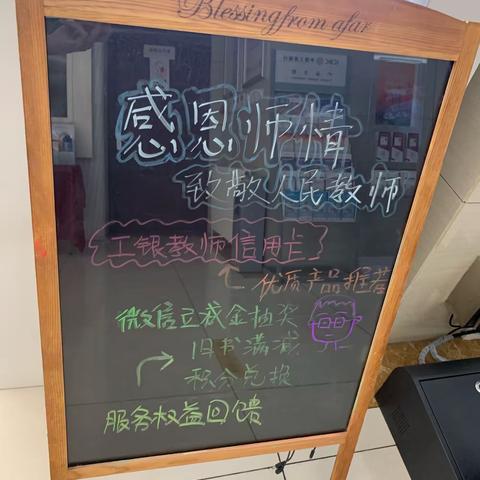 Blessing from afar
感恩师情
致敬人民教师
工银教师信用卡
优质产品推荐
微信立减金抽奖
旧书满减
积分兑换
服务权益回馈